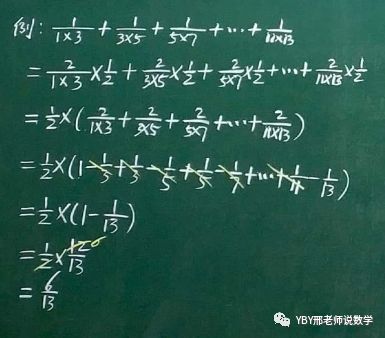 例: 1/1×3 + 1/3×5 + 1/5×7 + ··· + 1/11×13
= 2/1×3 × 1/2 + 2/3×5 × 1/2 + 2/5×7 × 1/2 + ··· + 2/11×13 × 1/2
= 1/2 × ( 2/1×3 + 2/3×5 + 2/5×7 + ··· + 2/11×13 )
= 1/2 × ( 1 - 1/3 + 1/3 - 1/5 + 1/5 - 1/7 + ··· + 1/11 - 1/13 )
= 1/2 × ( 1 - 1/13 )
= 1/2 × 12/13 6
= 6/13
YBY邢老师说数学